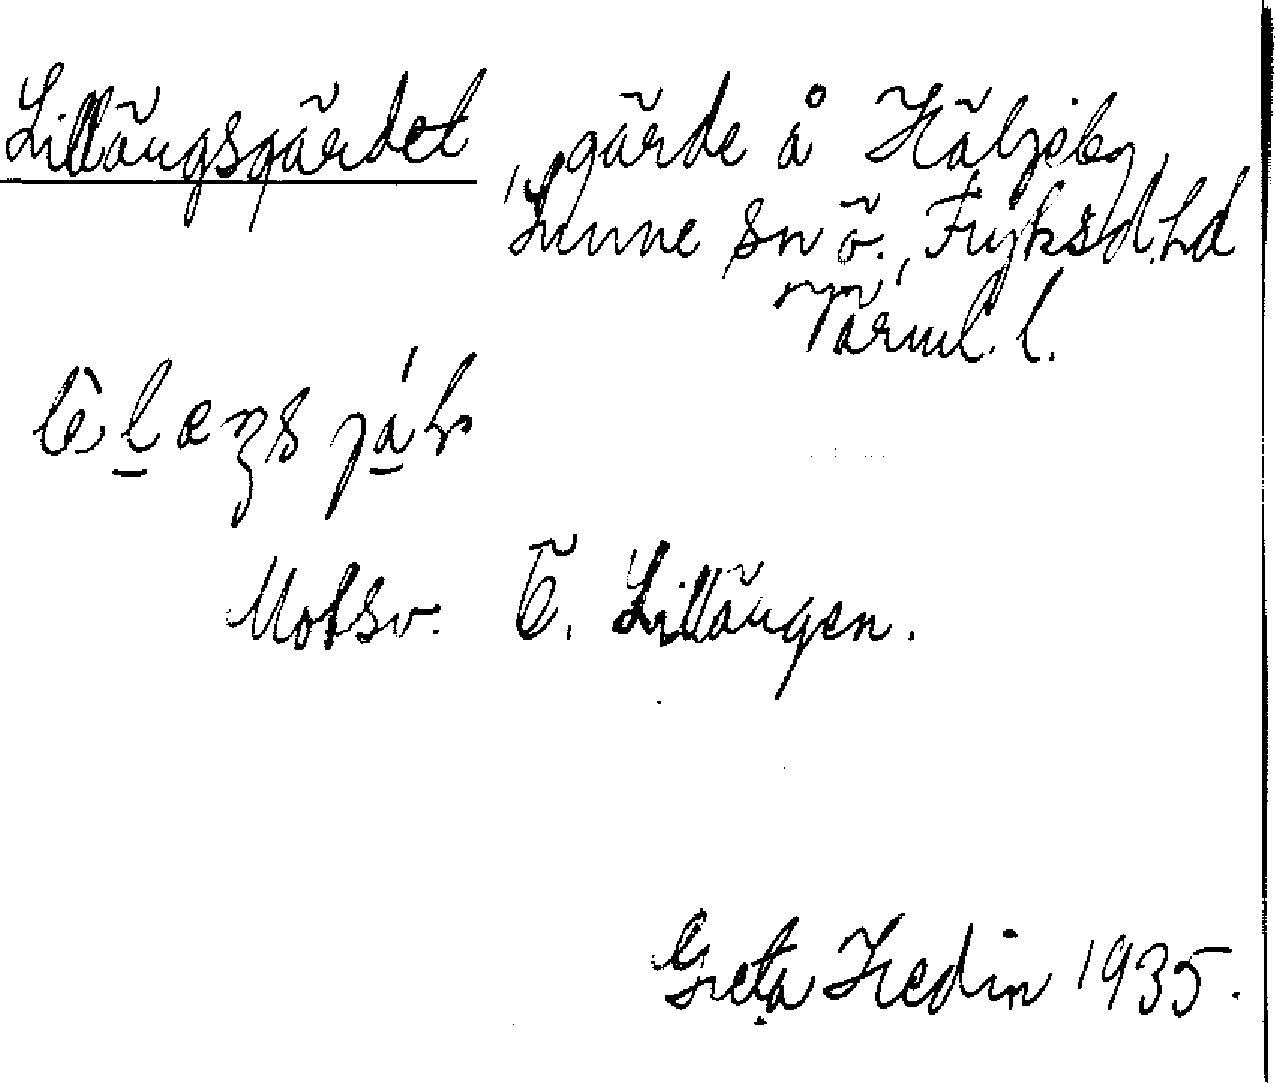 Lillängsgärdet, gärde å Häljeby,
Sunne sn ö., Fryksd. hd
Värml. l.
Motsv. Ö. Lillängen.
Greta Hedin 1935.